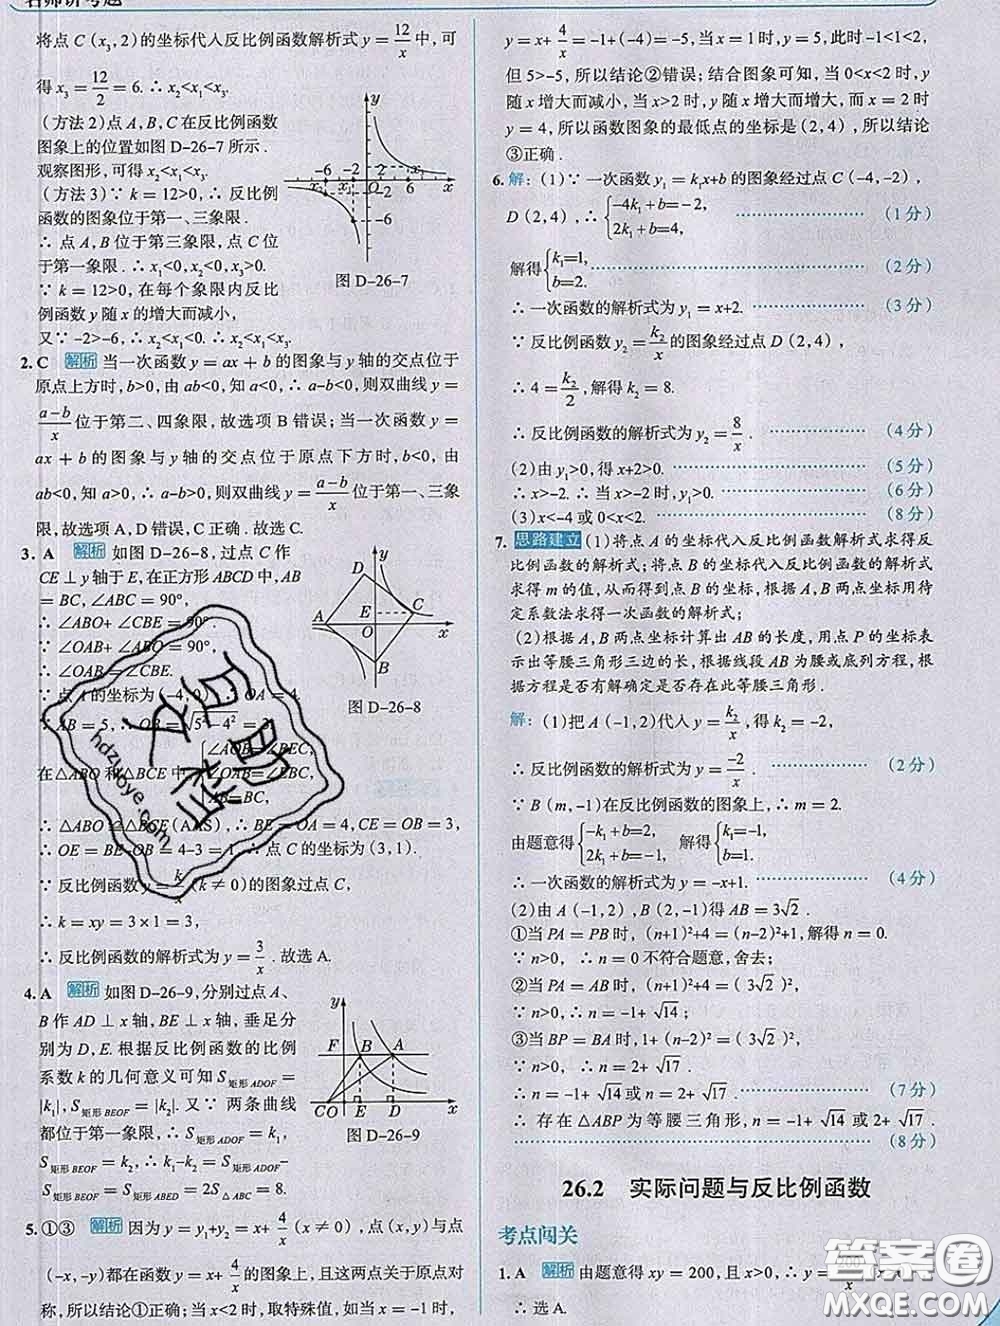 将点 C(x₃,2)的坐标代入反比例函数解析式 y=12/x 中,可
得 x₃=12/2=6. ∴ x₂<x₁<x₃.
(方法 2)点 A,B,C 在反比例函数
图象上的位置如图 D-26-7 所示.
观察图形,可得 x₂<x₁<x₃.
(方法 3)∵ k=12>0,∴ 反比例
函数的图象位于第一、三象限.
∴ 点 A,B 位于第三象限,点 C 位
于第一象限. ∴ x₁<0,x₂<0,x₃>0.
∵ k=12>0,在每个象限内反比
例函数 y 随 x 的增大而减小,
又∵ -2>-6,∴ x₂<x₁<0. ∴ x₂<x₁<x₃.
y
6
2
-6 -2
O 2 6 x
-2
-6
图 D-26-7
2. C 解析 当一次函数 y=ax+b 的图象与 y 轴的交点位于
原点上方时,b>0,由 ab<0,知 a<0,∴ a-b<0,则双曲线 y=
(a-b)/x 位于第二、四象限,故选项 B 错误;当一次函数 y=
ax+b 的图象与 y 轴的交点位于原点下方时,b<0,由
ab<0,知 a>0,∴ a-b>0,则双曲线 y=(a-b)/x 位于第一、三象
限,故选项 A,D 错误,C 正确. 故选 C.
3. A 解析 如图 D-26-8,过点 C 作
CE⊥y 轴于 E,在正方形 ABCD 中,AB
=BC,∠ABC=90°,
∴ ∠ABO+∠CBE=90°,
∵ ∠OAB+∠ABO=90°,
∴ ∠OAB=∠CBE.
∵ 点 A 的坐标为(-4,0),∴ OA=4.
∵ AB=5,∴ OB=√(5²-4²)=3,
在△ABO 和△BCE 中,{∠AOB=∠BEC,
∠OAB=∠EBC,
AB=BC,
∴ △ABO≌△BCE(AAS),∴ BE=OA=4,CE=OB=3,
∴ OE=BE-OB=4-3=1. ∴ 点 C 的坐标为(3,1).
∵ 反比例函数 y=k/x(k≠0)的图象过点 C,
∴ k=xy=3×1=3,
∴ 反比例函数的解析式为 y=3/x. 故选 A.
y
D
E C
A O x
B
图 D-26-8
4. A 解析 如图 D-26-9,分别过点 A、
B 作 AD⊥x 轴,BE⊥x 轴,垂足分
别为 D,E. 根据反比例函数的比例
系数 k 的几何意义可知 S矩形ADOF=
|k₁|,S矩形BEOF=|k₂|. 又∵ 两条曲线
都位于第一象限,∴ S矩形ADOF=k₁,
S矩形BEOF=k₂,∴ k₁-k₂=S矩形ADOF-
S矩形BEOF=S矩形ABED=2S△ABC=8.
y
F B A
CO E D x
图 D-26-9
5. ①③ 解析 因为 y=y₁+y₂=x+4/x(x≠0),点(x,y)与点
(-x,-y)都在函数 y=x+4/x 的图象上,且这两点关于原点对
称,所以结论①正确;当 x<2 时,取特殊值,如当 x=-1 时,
y=x+4/x=-1+(-4)=-5,当 x=1 时,y=5,此时-1<1<2,
但 5>-5,所以结论②错误;结合图象可知,当 0<x<2 时,y
随 x 增大而减小,当 x>2 时,y 随 x 增大而增大,而 x=2 时
y=4,所以函数图象的最低点的坐标是(2,4),所以结论
③正确.
6. 解:(1)∵ 一次函数 y₁=k₁x+b 的图象经过点 C(-4,-2),
D(2,4),∴ {-4k₁+b=-2,
2k₁+b=4, (1 分)
解得{k₁=1,
b=2. (2 分)
∴ 一次函数的解析式为 y₁=x+2. (3 分)
∵ 反比例函数 y₂=k₂/x 的图象经过点 D(2,4),
∴ 4=k₂/2,解得 k₂=8.
∴ 反比例函数的解析式为 y₂=8/x. (4 分)
(2)由 y₁>0,得 x+2>0. (5 分)
∴ x>-2. ∴ 当 x>-2 时,y₁>0. (6 分)
(3)x<-4 或 0<x<2. (8 分)
7. 思路建立 (1)将点 A 的坐标代入反比例函数解析式求得反
比例函数的解析式;将点 B 的坐标代入反比例函数的解析式
求得 m 的值,从而得到点 B 的坐标,根据 A,B 两点坐标用待
定系数法求得一次函数的解析式;
(2)根据 A,B 两点坐标计算出 AB 的长度,用点 P 的坐标表
示出等腰三角形三边的长,根据线段 AB 为腰或底列方程,根
据方程是否有解确定是否存在此等腰三角形.
解:(1)把 A(-1,2)代入 y=k₂/x,得 k₂=-2,
∴ 反比例函数的解析式为 y=-2/x. (2 分)
∵ B(m,-1)在反比例函数的图象上,∴ m=2.
由题意得{-k₁+b=2,
2k₁+b=-1, 解得{k₁=-1,
b=1.
∴ 一次函数的解析式为 y=-x+1. (4 分)
(2)由 A(-1,2),B(2,-1)得 AB=3√2.
①当 PA=PB 时,(n+1)²+4=(n-2)²+1,解得 n=0.
∵ n>0,∴ n=0 不符合题意,舍去;
②当 PA=AB 时,(n+1)²+4=(3√2)²,
∵ n>0,∴ n=-1+√14;
③当 BP=BA 时,1+(n-2)²=(3√2)²,
∵ n>0,∴ n=2+√17.
∴ n=-1+√14 或 n=2+√17. (7 分)
∴ 存在△ABP 为等腰三角形,n=-1+√14 或 2+√17.
(8 分)
26.2 实际问题与反比例函数
考点闯关
1. A 解析 由题意得 xy=200,且 x>0,∴
∴ 选 A.
hdzuoye.com
答案圈
MXQE.COM